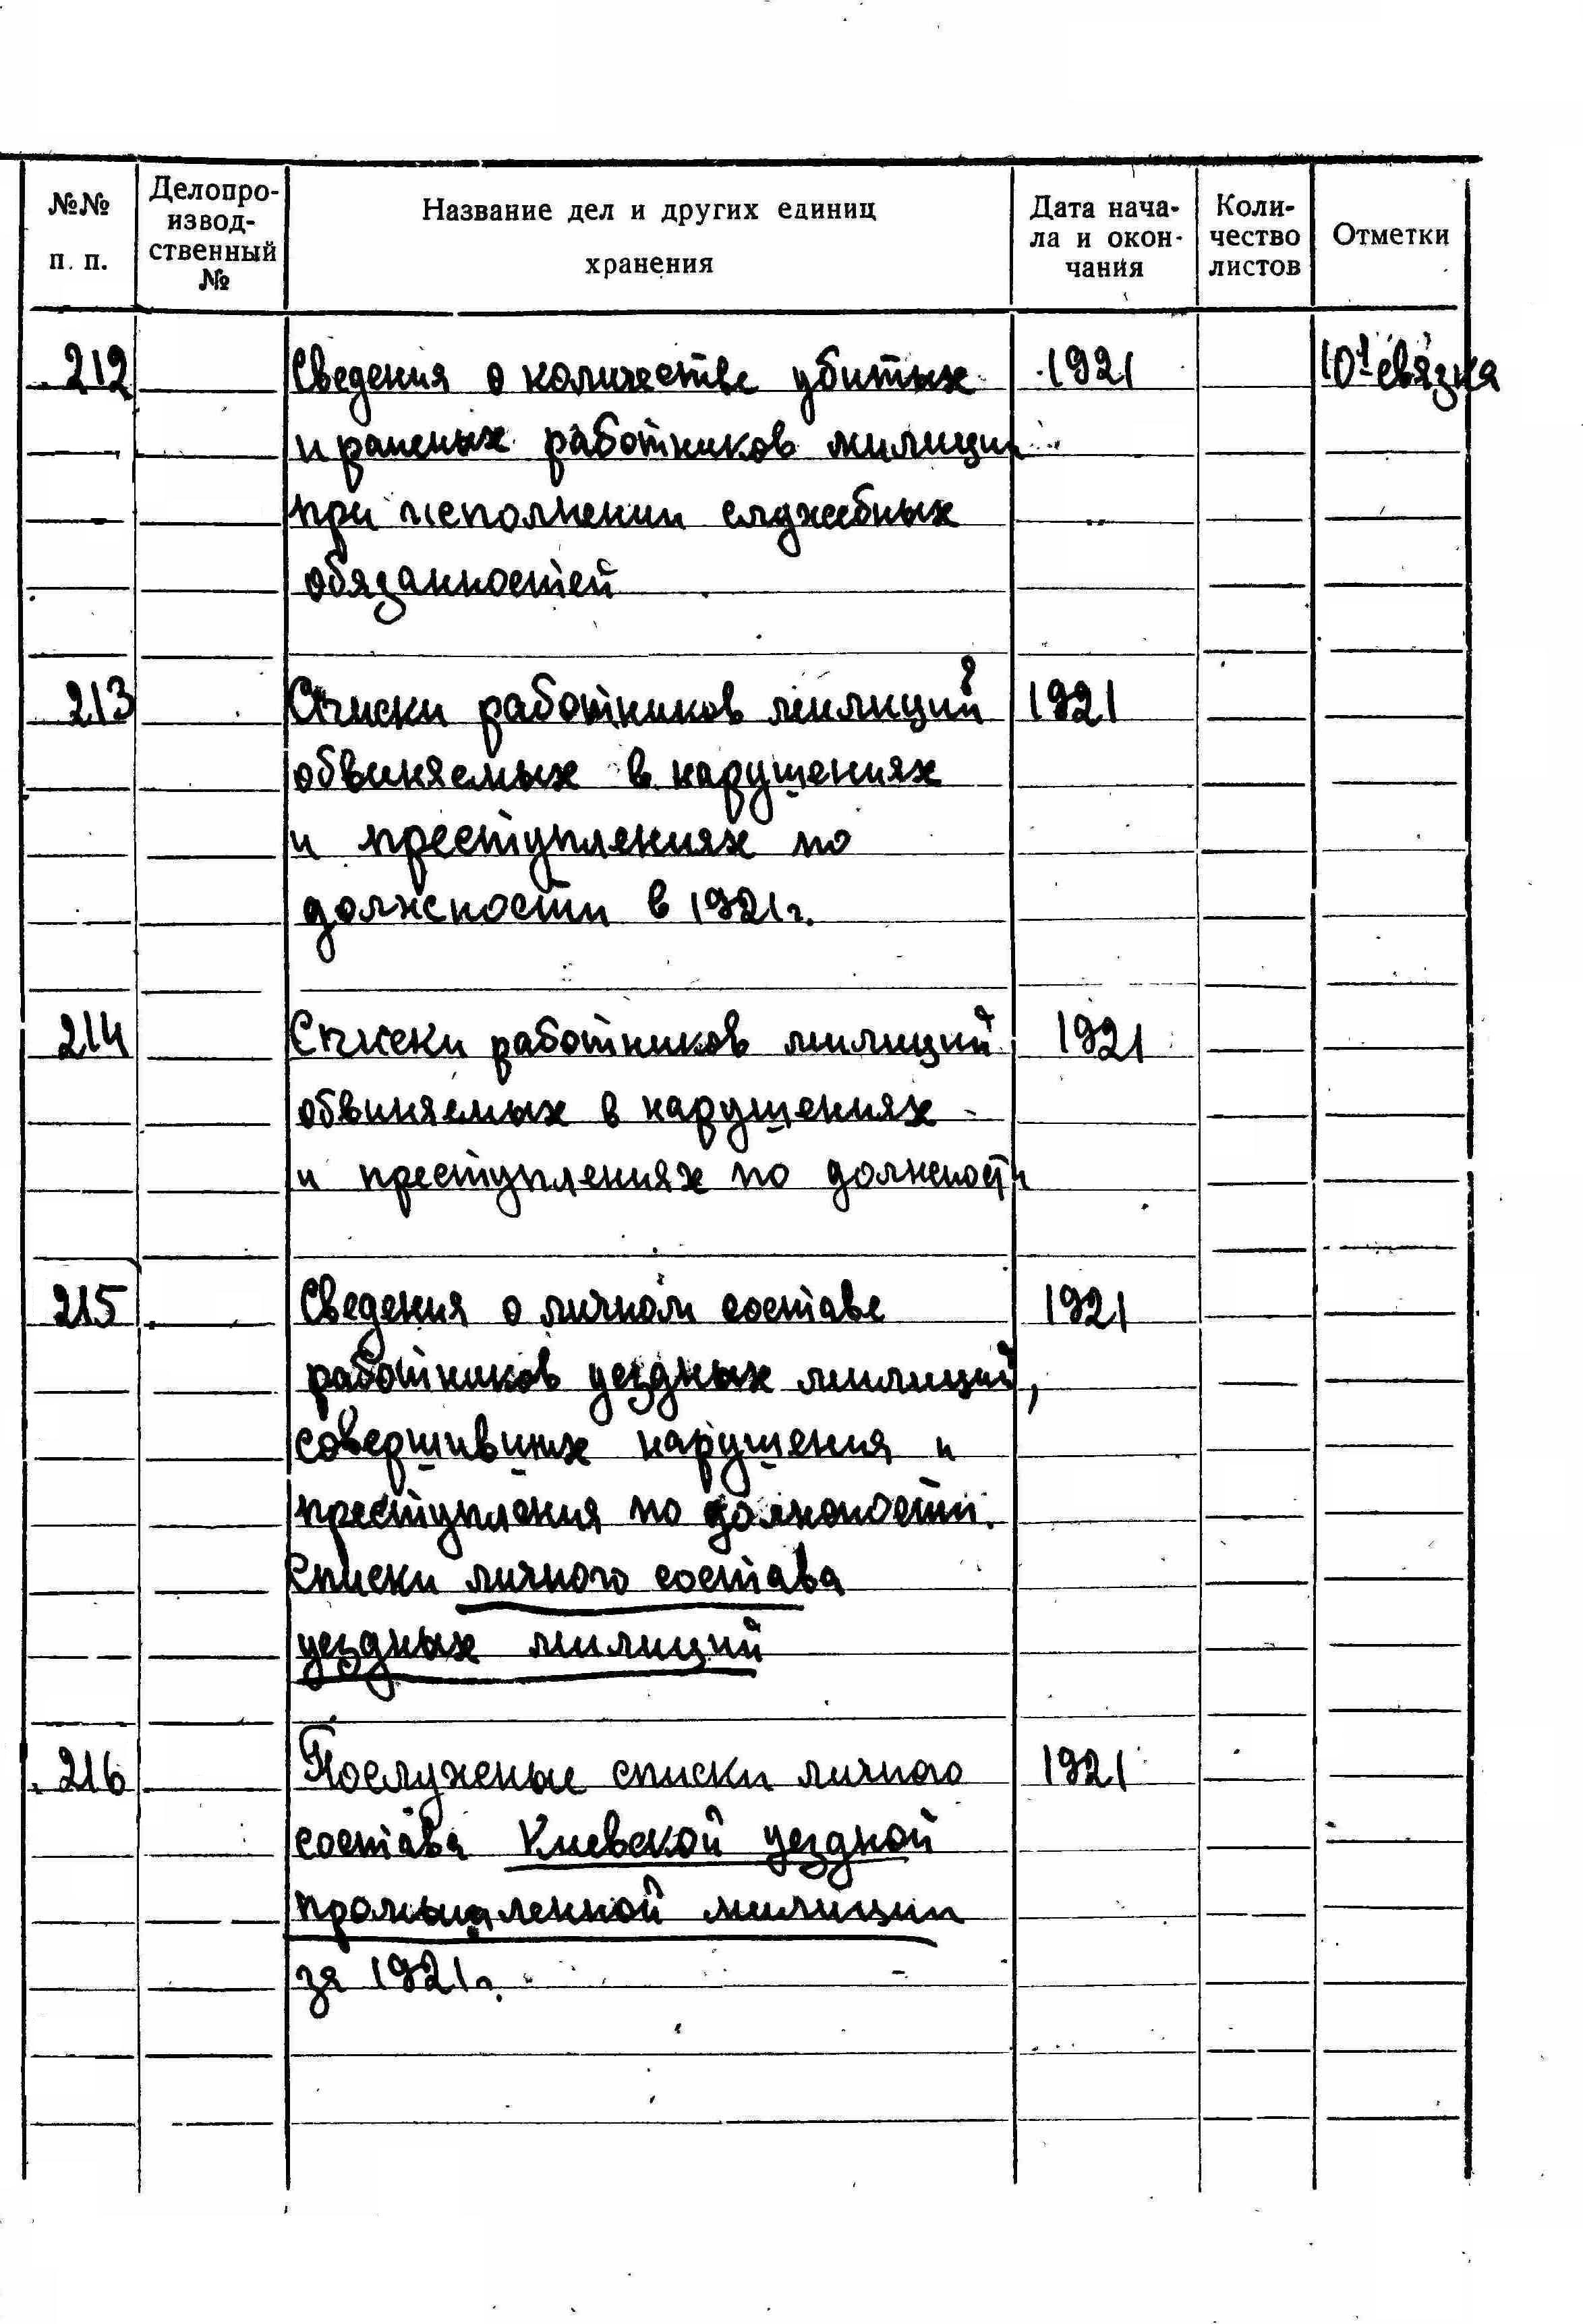 №№ п. п.
Делопро-
извод-
ственный
№
Название дел и других единиц
хранения
Дата нача-
ла и окон-
чания
Коли-
чество
листов
Отметки
212 Сведения о количестве убитых 1921 10 связка
и раненых работников милиции
при исполнении служебных
обязанностей
213 Списки работников милиций 1921
обвиняемых в нарушениях
и преступлениях по
должности в 1921г.
214 Списки работников милиций 1921
обвиняемых в нарушениях
и преступлениях по должности
215 Сведения о личном составе 1921
работников уездных милиций,
совершивших нарушения и
преступления по должности.
Списки личного состава
уездных милиций
216 Послужные списки личного 1921
состава Киевской уездной
промышленной милиции
за 1921г.